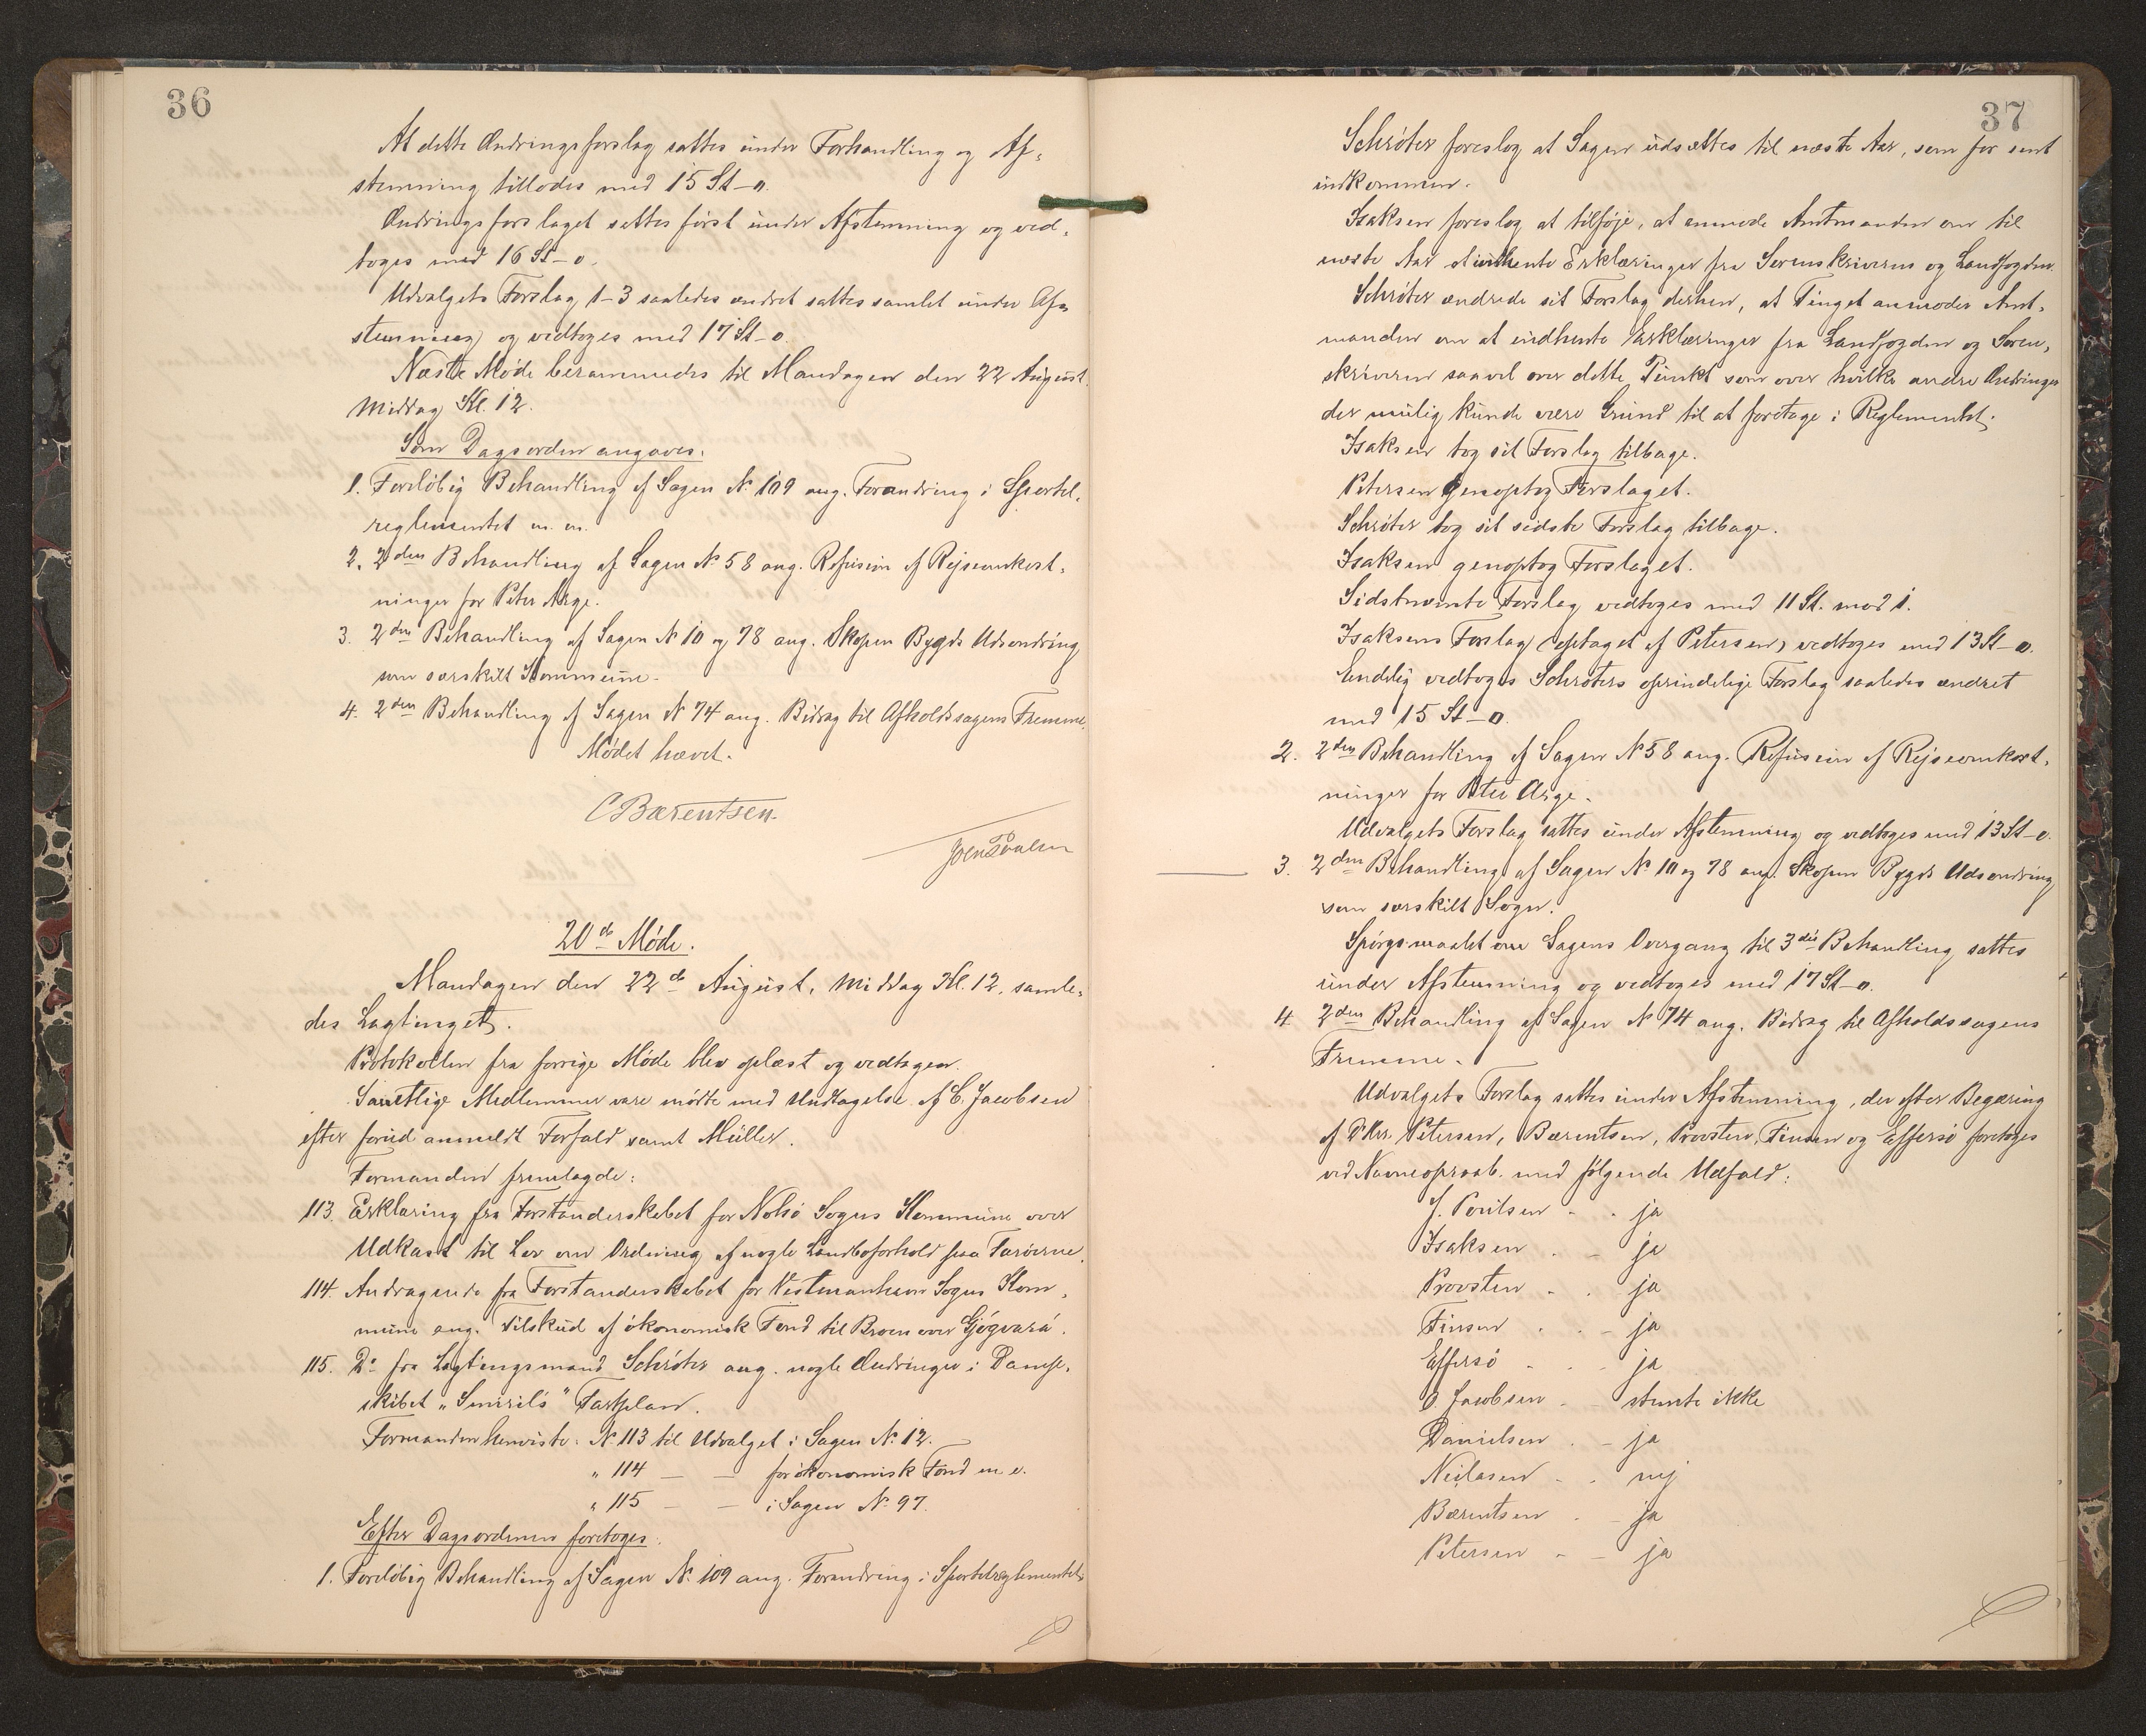 36
At dette Ændringsforslag sattes under Forhandling og Af-
stemning tillodes med 15 St-0.
Ændringsforslaget sattes først under Afstemning og ved-
toges med 16 St-0.
Udvalgets Forslag 1-3 saaledes ændret sattes samlet under Af-
stemning og vedtoges med 17 St-0.
Næste Møde berammedes til Mandagen den 22 August
Middag Kl. 12.
Som Dagsorden angaves:
1. Foreløbig Behandling af Sagen No 109 ang. Forandring i Sportel-
reglementet m. m.
2. 2den Behandling af Sagen No 58 ang. Refusion af Rejseomkost-
ninger for Peter Arge.
3. 2den Behandling af Sagen No 10 og 78 ang. Skopen Bygds Udsondring
som særskilt Kommune.
4. 2den Behandling af Sagen No 74 ang. Bidrag til Afholdssagens Fremme.
Mødet hævet.
C Bærentsen.
Joen Poulsen
20de Møde.
Mandagen den 22de August, Middag Kl. 12. samle-
des Lagtinget.
Protokollen fra forrige Møde blev oplæst og vedtagen.
Samtlige Medlemmer vare mødte med Undtagelse af C. Jacobsen
efter forud anmeldt Forfald samt Müller.
Formanden fremlagde:
113. Erklæring fra Forstanderskabet for Nolsø Sogns Kommune over
Udkast til Lov om Ordning af nogle Landboforhold paa Færøerne.
114. Andragende fra Forstanderskabet for Vestmanhavn Sogns Kom-
mune ang. Tilskud af økonomisk Fond til Broen over Gjógvará.
115. Do fra Lagtingsmand Schrøter ang. nogle Ændringer i Damp-
skibet "Smirils" Fartplan.
Formanden henviste: No 113 til Udvalget i Sagen No 12.
" 114 — — for økonomisk Fond m. v.
" 115 — — i Sagen No 97.
Efter Dagsordenen foretoges:
1. Foreløbig Behandling af Sagen No 109 ang. Forandring i Sportelreglementet
37
Schrøter foreslog at Sagen udsættes til næste Aar, som for sent
indkommen.
Isaksen foreslog at tilføje, at anmode Amtmanden om til
næste Aar at indhente Erklæringer fra Sorenskriveren og Landfogden.
Schrøter ændrede sit Forslag derhen, at Tinget anmoder Amt-
manden om at indhente Erklæringer fra Landfogden og Soren-
skriveren saavel over dette Punkt som over hvilke andre Ændringer
der mulig kunde være Grund til at foretage i Reglementet.
Isaksen tog sit Forslag tilbage.
Petersen genoptog Forslaget.
Schrøter tog sit sidste Forslag tilbage.
Isaksen genoptog Forslaget.
Sidstnævnte Forslag vedtoges med 11 St. mod 1.
Isaksens Forslag (optaget af Petersen) vedtoges med 13 St-0.
Endelig vedtoges Schrøters oprindelige Forslag saaledes ændret
med 15 St-0.
2. 2den Behandling af Sagen No 58 ang. Refusion af Rejseomkost-
ninger for Peter Arge.
Udvalgets Forslag sattes under Afstemning og vedtoges med 13 St-0.
3. 2den Behandling af Sagen No 10 og 78 ang. Skopen Bygds Udsondring
som særskilt Sogn.
Spørgsmaalet om Sagens Overgang til 3die Behandling sattes
under Afstemning og vedtoges med 17 St-0.
4. 2den Behandling af Sagen No 74 ang. Bidrag til Afholdssagens
Fremme.
Udvalgets Forslag sattes under Afstemning, der efter Begæring
af DHrr. Petersen, Bærentsen, Provsten, Finsen og Effersø foretoges
ved Navneopraab med følgende Udfald:
J. Poulsen - - ja
Isaksen - - ja
Provsten - - ja
Finsen - - ja
Effersø - - ja
O. Jacobsen - - stemte ikke
Danielsen - - ja
Neilasen - - nej
Bærentsen - - ja
Petersen - - ja